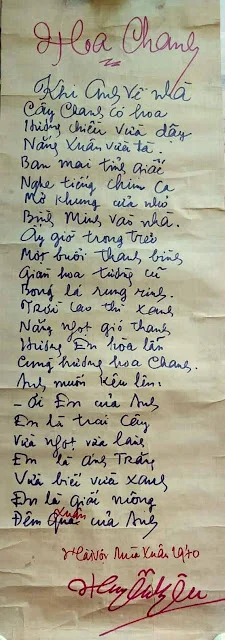 Hoa Chanh
Khi Anh Về nhà
Cây Chanh có hoa
Hương chiều vừa dậy
Nắng Xuân vừa tà.
Ban mai tỉnh giấc
Nghe tiếng chim ca
Mở khung cửa nhỏ
Bình Minh vào nhà.
Ấy giờ trong trẻo
Một buổi thanh bình
Giàn hoa tường cũ
Bóng lá rung rinh.
Trời cao thì xanh
Nắng ngọt gió thanh
Hương Em hòa lẫn
Cùng hương hoa Chanh.
Anh muốn kêu lên:
- Ơi Em của Anh
Em là trái Cây
Vừa ngọt vừa lành
Em là ánh Trăng
Vừa biếc vừa xanh
Em là giấc nồng
Đêm Xuân của Anh
Hà Nội Mùa Xuân 1970